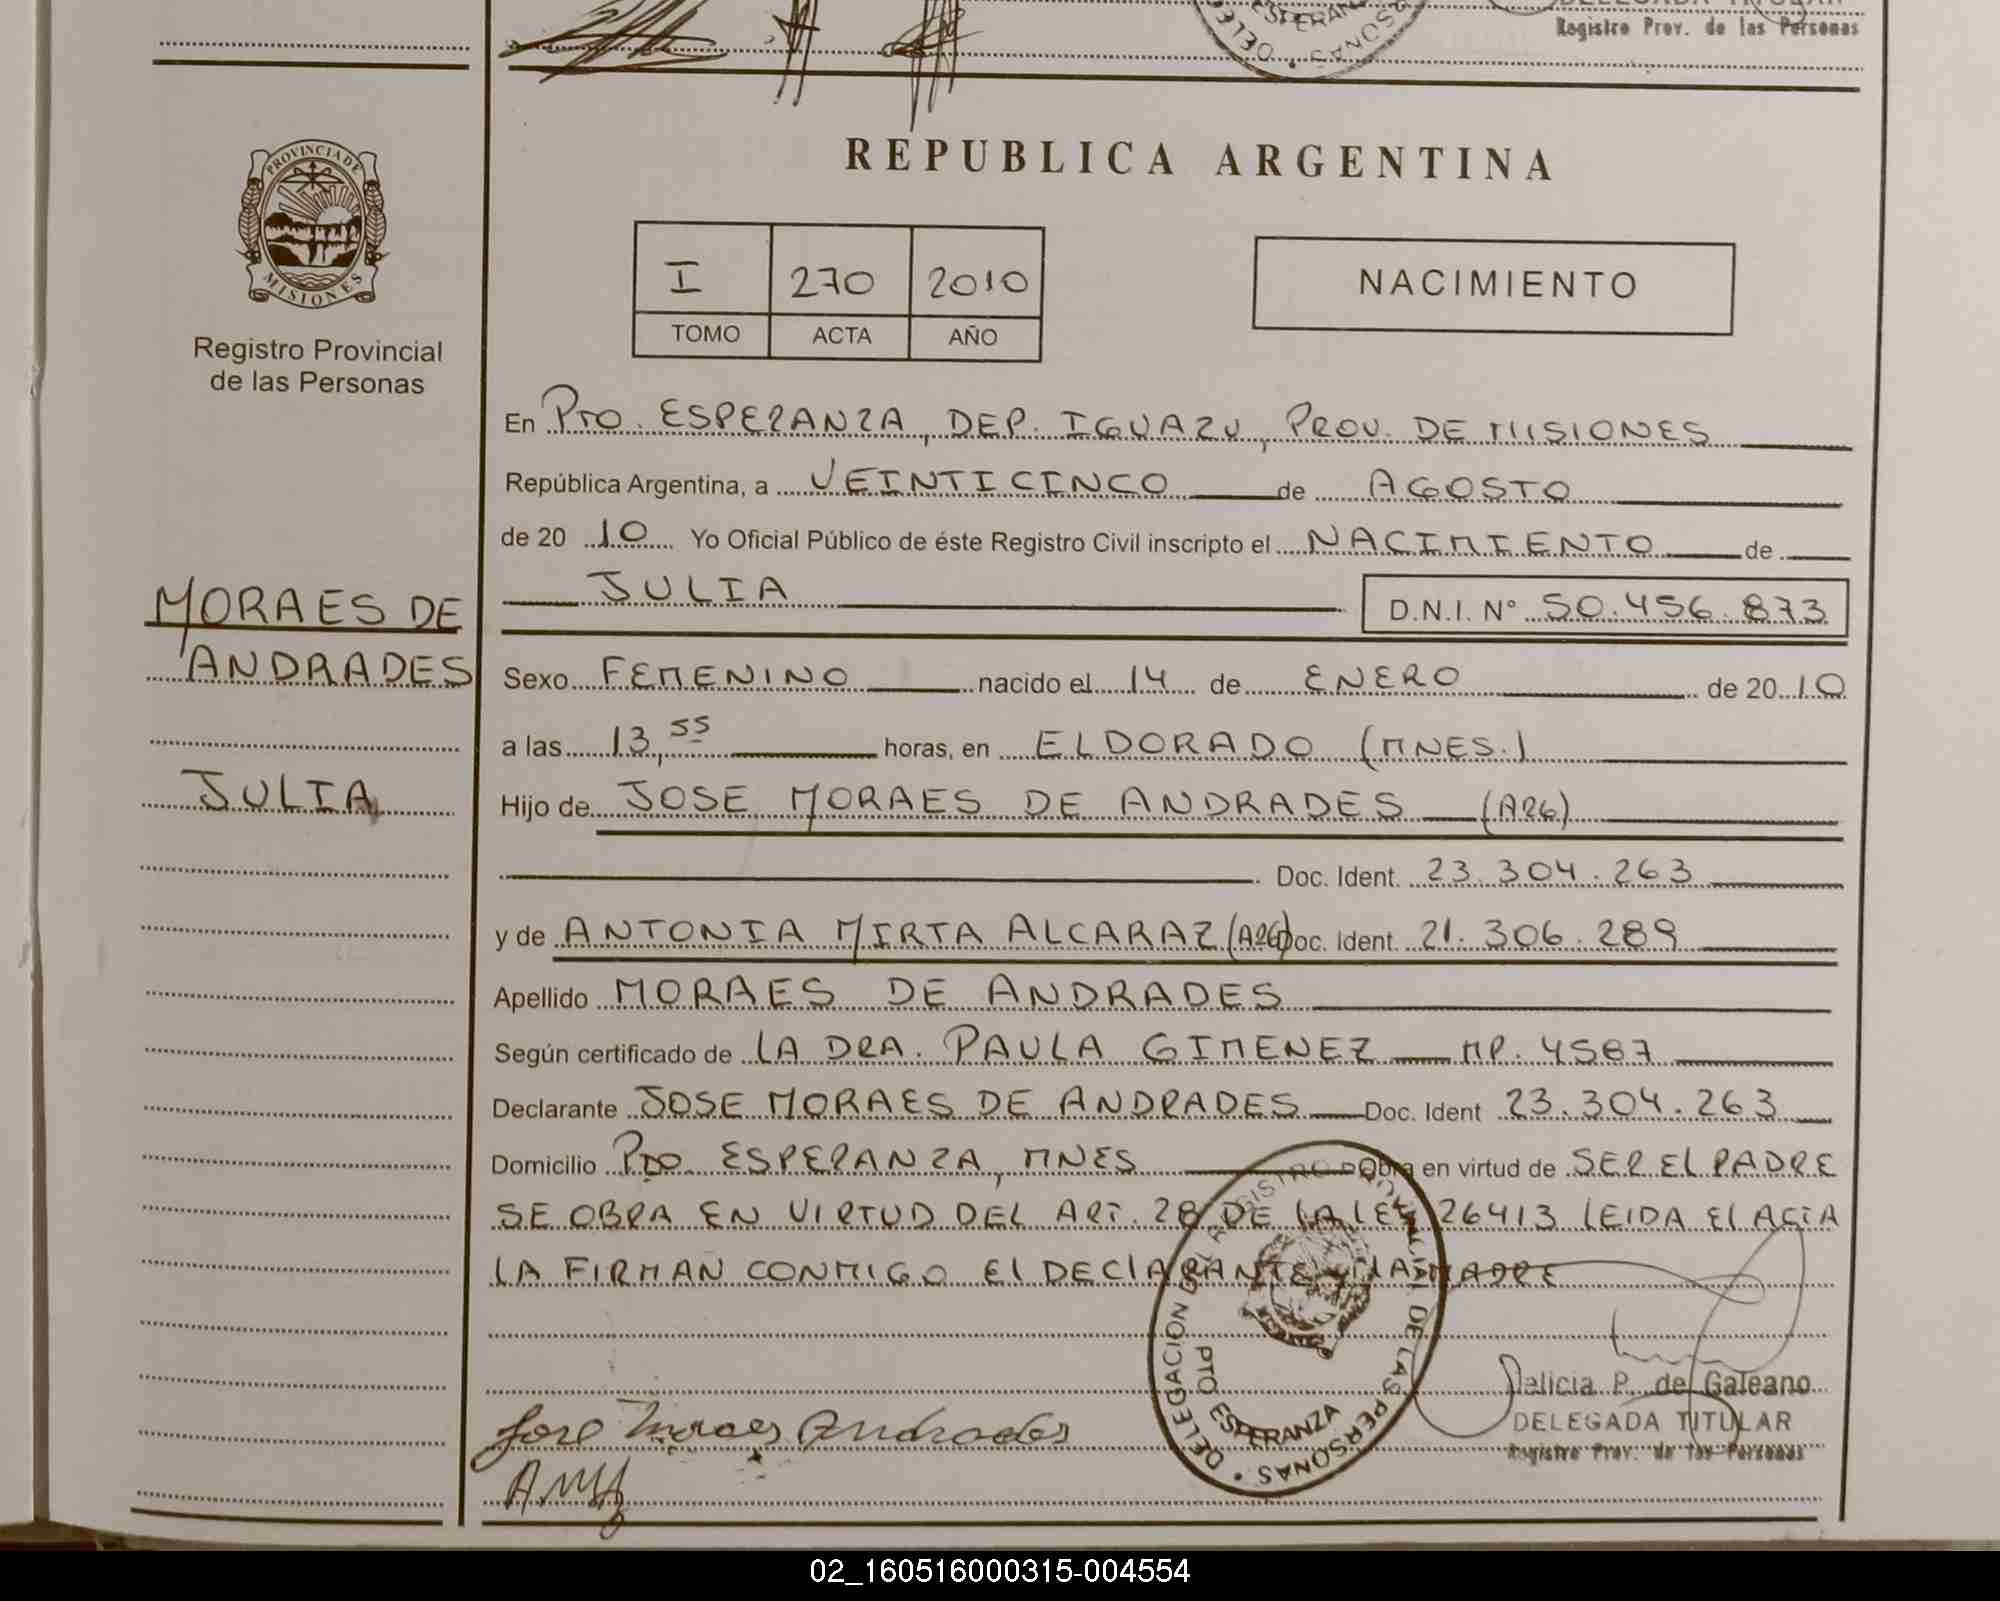 ESPERANZA
DELEGADA TITULAR
Registro Prov. de las Personas
PROVINCIA DE
MISIONES
Registro Provincial
de las Personas
REPUBLICA ARGENTINA
I 270 2010
TOMO ACTA AÑO
NACIMIENTO
En Pto. ESPERANZA, DEP. IGUAZU, PROV. DE MISIONES
República Argentina, a VEINTICINCO de AGOSTO
de 20 10 Yo Oficial Público de éste Registro Civil inscripto el NACIMIENTO de
JULIA D.N.I. N° 50.456.873
MORAES DE
ANDRADES
JULIA
Sexo FEMENINO nacido el 14 de ENERO de 20 10
a las 13,55 horas, en ELDORADO (MNES.)
Hijo de JOSE MORAES DE ANDRADES (ARG)
Doc. Ident. 23.304.263
y de ANTONIA MIRTA ALCARAZ (ARG) Doc. Ident. 21.306.289
Apellido MORAES DE ANDRADES
Según certificado de LA DRA. PAULA GIMENEZ MP. 4587
Declarante JOSE MORAES DE ANDRADES Doc. Ident 23.304.263
Domicilio Pto. ESPERANZA, MNES Obra en virtud de SER EL PADRE
SE OBRA EN VIRTUD DEL ART. 28 DE LA LEY 26413 LEIDA EL ACTA
LA FIRMAN CONMIGO El DEClARANTE Y LA MADRE
DELEGACION DEL REGISTRO PROVINCIAL DE LAS PERSONAS
PTO ESPERANZA
Jose Moraes Andrades
AMA
Delicia P. de Galeano
DELEGADA TITULAR
Registro Prov. de las Personas
02_160516000315-004554